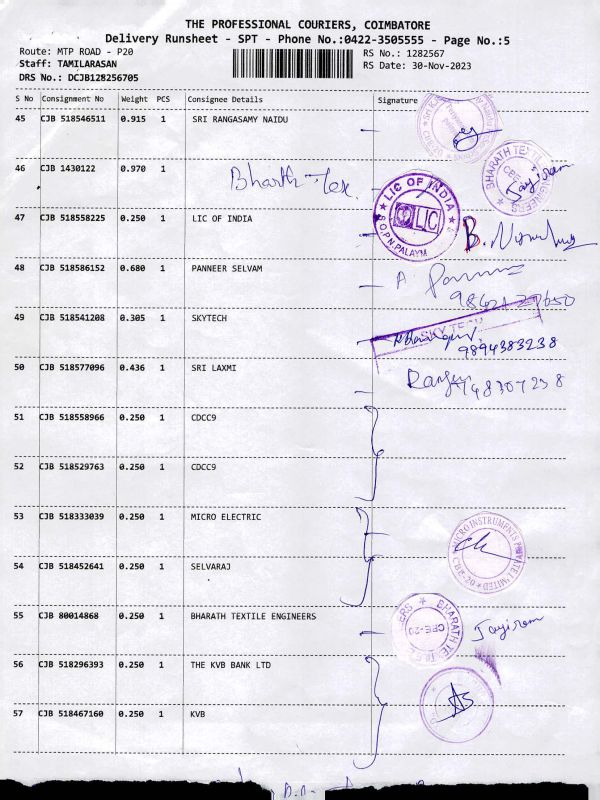 THE PROFESSIONAL COURIERS, COIMBATORE
Delivery Runsheet - SPT - Phone No.:0422-3505555 - Page No.:5
Route: MTP ROAD - P20
RS No.: 1282567
Staff: TAMILARASAN
RS Date: 30-Nov-2023
DRS No.: DCJB128256705
S No Consignment No Weight PCS Consignee Details Signature
45 CJB 518546511 0.915 1 SRI RANGASAMY NAIDU
46 CJB 1430122 0.970 1
Bharth Tex.
BHARATH TEXTILE ENGINEERS
Jayiram
47 CJB 518558225 0.250 1 LIC OF INDIA
LIC OF INDIA
LIC
S.O.P.N.PALAYM
B.
48 CJB 518586152 0.680 1 PANNEER SELVAM
A
49 CJB 518541208 0.305 1 SKYTECH
SKY TECH
9894383238
50 CJB 518577096 0.436 1 SRI LAXMI
51 CJB 518558966 0.250 1 CDCC9
52 CJB 518529763 0.250 1 CDCC9
53 CJB 518333039 0.250 1 MICRO ELECTRIC
MICRO INSTRUMENTS PRIVATE LIMITED
CBE-20
54 CJB 518452641 0.250 1 SELVARAJ
55 CJB 80014868 0.250 1 BHARATH TEXTILE ENGINEERS
BHARATH TEXTILE
CBE-20
Jayiram
56 CJB 518296393 0.250 1 THE KVB BANK LTD
57 CJB 518467160 0.250 1 KVB